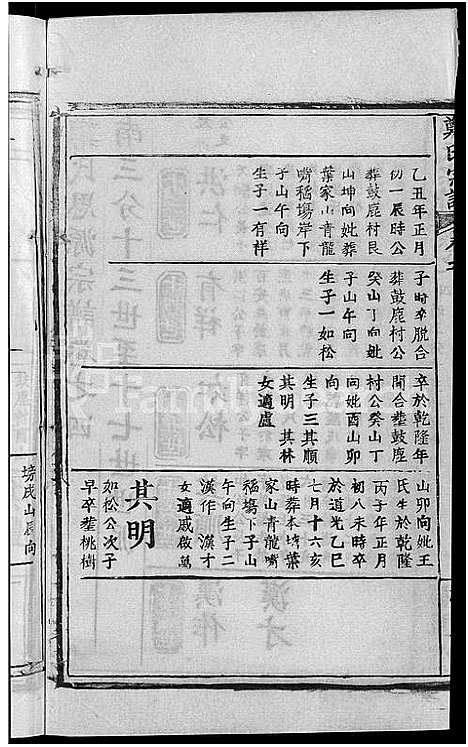 鄭氏宗譜
乙丑年正月
初一辰時公
葬鼓鹿村艮
山坤向妣葬
葉家山青龍
嘴稻場岸下
子山午向
生子一有祥
子時卒脫合
葬鼓鹿村公
癸山丁向妣
子山午向
生子一如松
卒於乾隆年
間合塟鼓鹿
村公癸山丁
向妣酉山卯
向
生子三其順
其明 其林
女適盧
山卯向妣王
氏生於乾隆
丙子年正月
初八未時卒
於道光乙巳
七月十六亥
時葬本塆葉
家山青龍嘴
稻塲下子山
午向生子二
漢作 漢才
女適戚啟萬
其明
如松公次子
早卒塟桃樹
塝戌山辰向